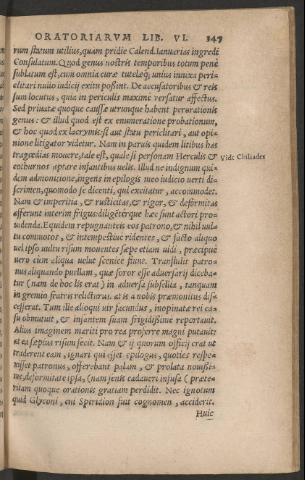 ORATORIARVM LIB. VI. 347
rum statum utilius, quam pridie Calend. Ianuarias ingredi
Consulatum. Quod genus nostris temporibus totum penè
sublatum est, cum omnia curæ tutelæq́; unius innixa peri-
clitari nullo iudicij exitu possint. De accusatoribus & reis
sum locutus, quia in periculis maximè versatur affectus.
Sed priuatæ quoque caussæ utrunque habent perorationis
genus: & illud quod est ex enumeratione probationum,
& hoc quod ex lacrymis: si aut statu periclitari, aut opi-
nione litigator videtur. Nam in paruis quidem litibus has
tragœdias mouere, tale est, quale si personam Herculis &
cothurnos aptare infantibus uelis. Illud ne indignum qui-
dem admonitione, ingens in epilogis meo iudicio verti di-
scrimen, quomodo se dicenti, qui excitatur, accommodet.
Nam & imperitia, & rusticitas, & rigor, & deformitas
afferunt interim frigus: diligẽterque hæc sunt actori pro-
uidenda. Equidem repugnanteis eos patrono, & nihil uul-
tu commotos, & intempestiuè ridentes, & facto aliquo
uel ipso uultu risum mouentes sæpe etiam uidi, præcipuè
vero cùm aliqua uelut scenicè fiunt. Transtulit patro-
nus aliquando puellam, quæ soror esse aduersarij diceba-
tur (nam de hoc lis erat) in aduersa subsellia, tanquam
in gremio fratris relicturus. at is à nobis præmonitus dis-
cesserat. Tum ille alioqui uir facundus, inopinatæ rei ca-
su obmutuit, & infantem suam frigidissimè reportauit.
Alius imaginem mariti pro rea proferre magni putauit:
at ea sæpius risum fecit. Nam & ij quorum officij erat ut
traderent eam, ignari qui esset epilogus, quoties respe-
xisset patronus, offerebant palam, & prolata nouißi-
mè, deformitate ipsa, (nam senis cadaueri infusa) præte-
ritam quoque orationis gratiam perdidit. Nec ignotum
quid Glyconi, cui Spiridion fuit cognomen, acciderit.
Huic
Vide Chiliades